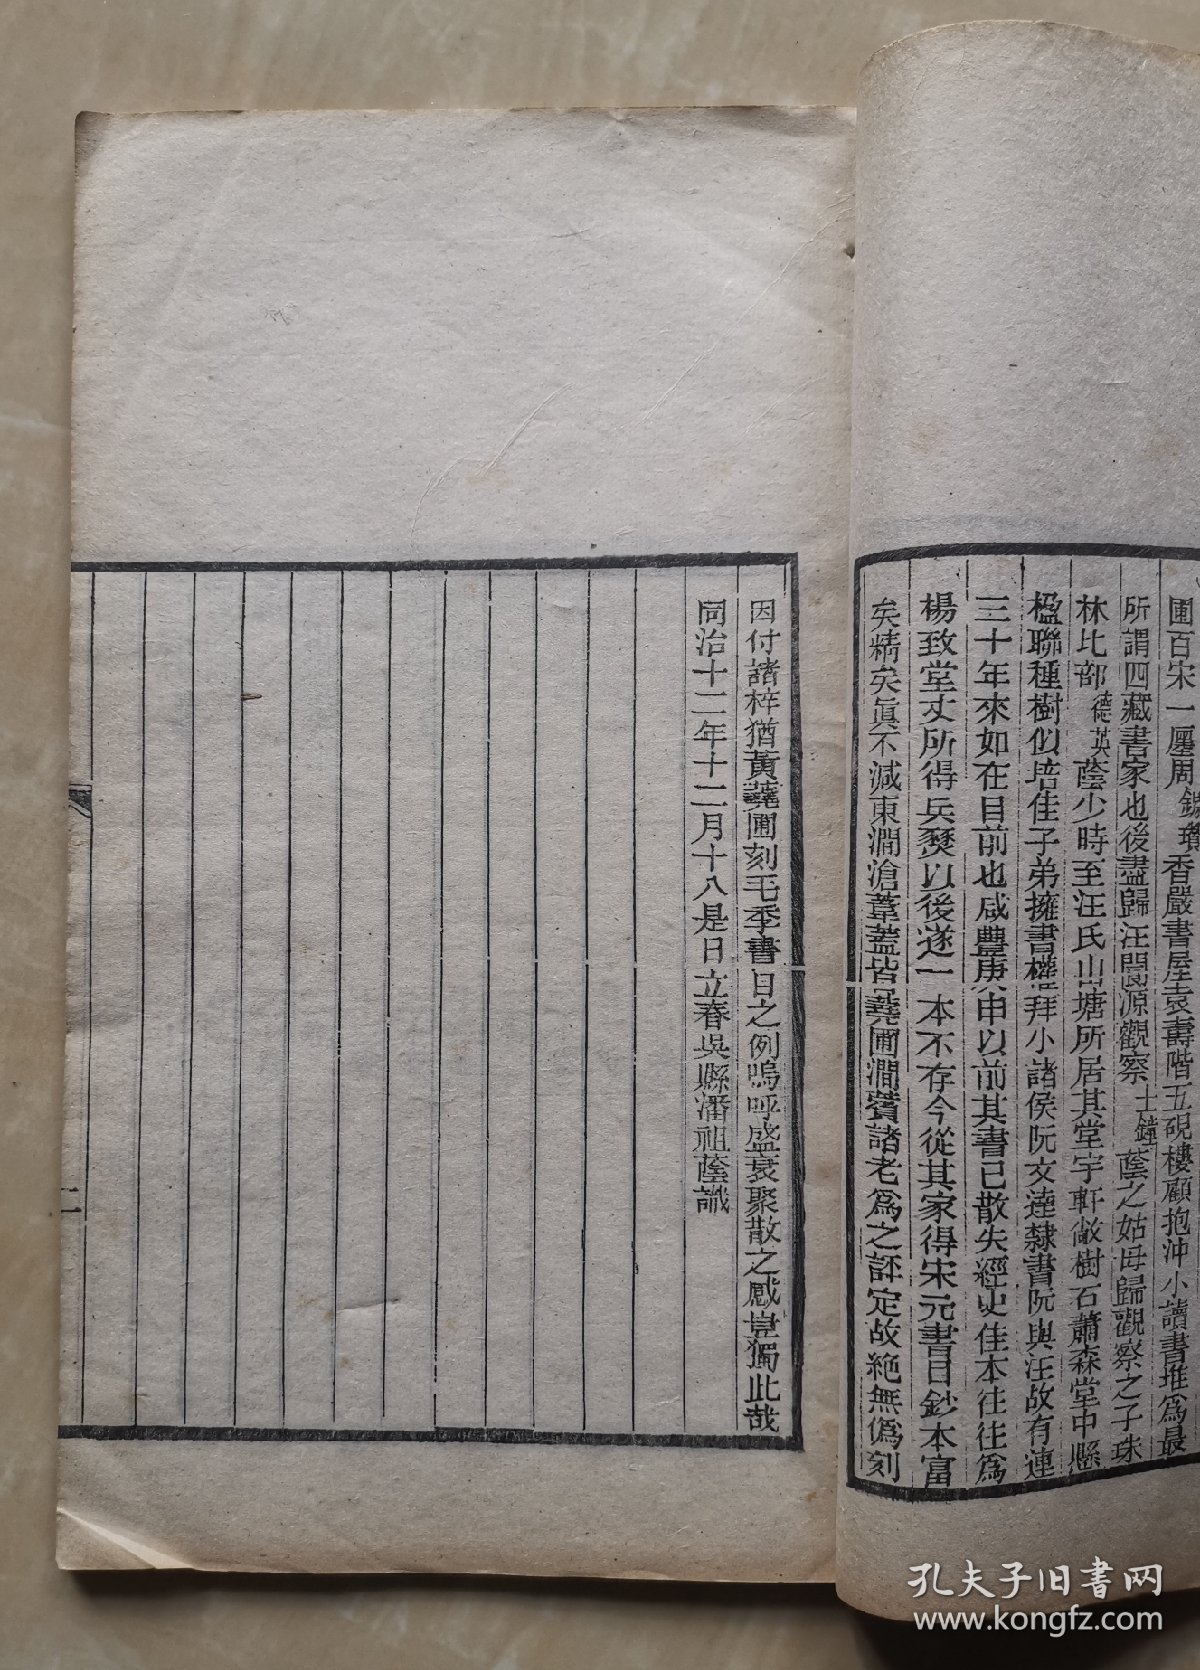 圃百宋一廛周錫瓚香嚴書屋袁壽階五硯樓顧抱沖小讀書堆爲最
所謂四藏書家也後盡歸汪閬源觀察士鐘蔭之姑母歸觀察之子珠
林比部德英蔭少時至汪氏山塘所居其堂宇軒敞樹石蕭森堂中懸
楹聯種樹似培佳子弟擁書權拜小諸侯阮文達隸書阮與汪故有連
三十年來如在目前也咸豐庚申以前其書已散失經史佳本往往爲
楊致堂丈所得兵燹以後遂一本不存今從其家得宋元書目鈔本富
矣精矣眞不減東澗滄葦蓋皆蕘圃澗薲諸老爲之評定故絶無僞刻
因付諸梓猶黃蕘圃刻毛季書目之例嗚呼盛衰聚散之感豈獨此哉
同治十二年十二月十八是日立春吳縣潘祖蔭識
二
孔夫子旧書网
www.kongfz.com